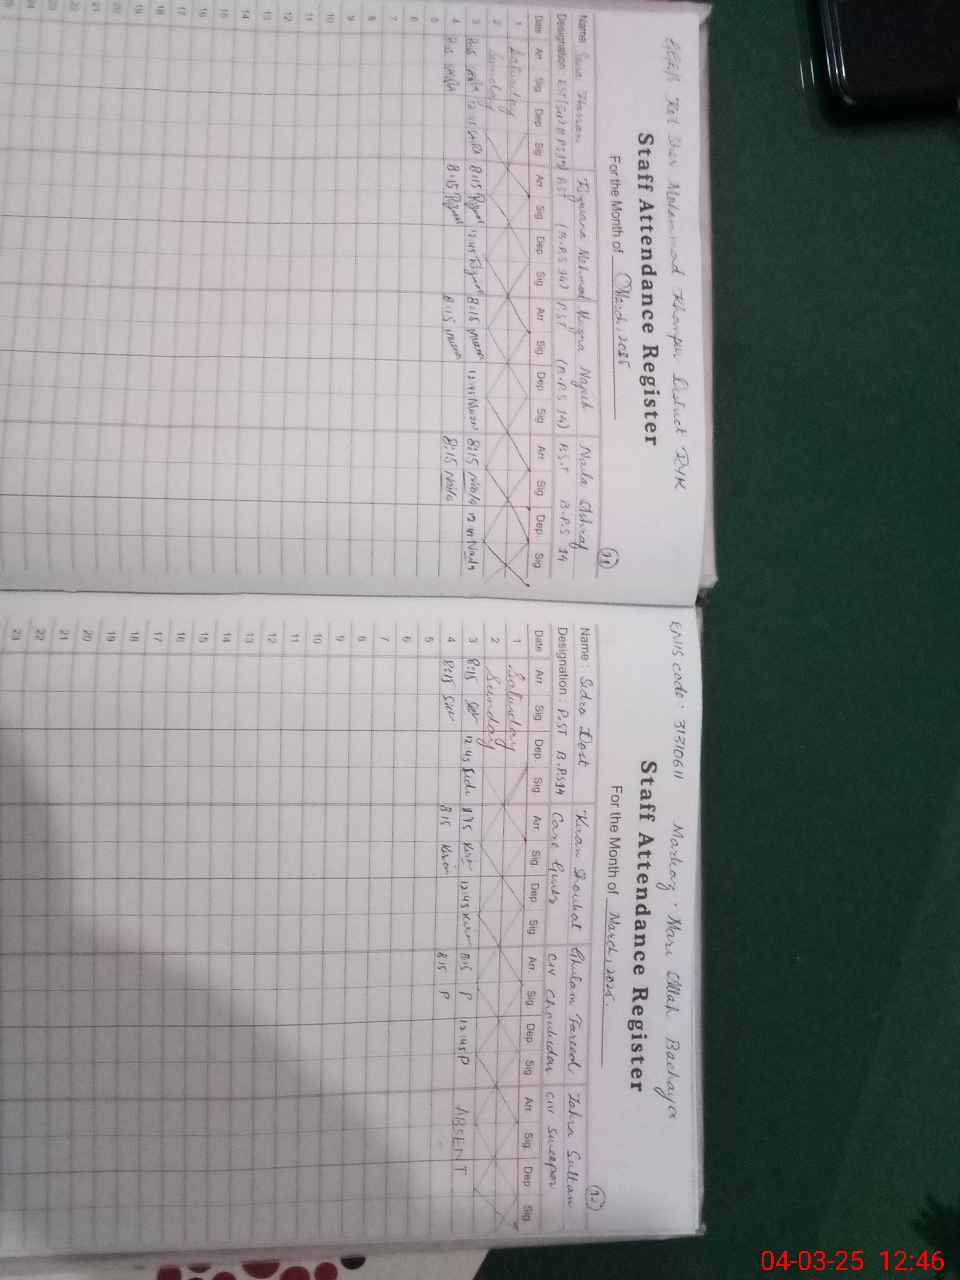 Kot Sher Mohammad Khanpur District RYK
Staff Attendance Register
For the Month of March, 2025
11
Name: Hassan Rizwana Mehmal Najeeb Naila Ashraf
Designation: (B.P.S 14) PST (B.P.S 14) P.S.T B.P.S 14
Date Arr Sig Dep Sig Arr Sig Dep Sig Arr Sig Dep Sig Arr Sig Dep Sig
1 Saturday
2 Sunday
3 8:15 12:45 8:15 12:45 8:15 12:45 8:15 Naila 12:45 Naila
4 8:15 8:15 8:15 8:15 Naila
5
6
7
8
9
10
11
12
13
14
15
16
17
18
19
20
21
22
23
24
25
EMIS code: 31310611 Markaz: Mari Allah Bachaya
Staff Attendance Register
For the Month of March, 2025.
12
Name: Sidra Dost Kiran Shoukat Ghulam Fareed Zahra Sultan
Designation: P.ST B.PS14 Care Giver CIV Choukidar CIV Sweeper
Date Arr Sig Dep Sig Arr Sig Dep Sig Arr Sig Dep Sig Arr Sig Dep Sig
1 Saturday
2 Sunday
3 8:15 12:45 8:15 12:45 8:15 P 12:45 P ABSENT
4 8:15 8:15 Kiran 8:15 P
5
6
7
8
9
10
11
12
13
14
15
16
17
18
19
20
21
22
23
04-03-25 12:46